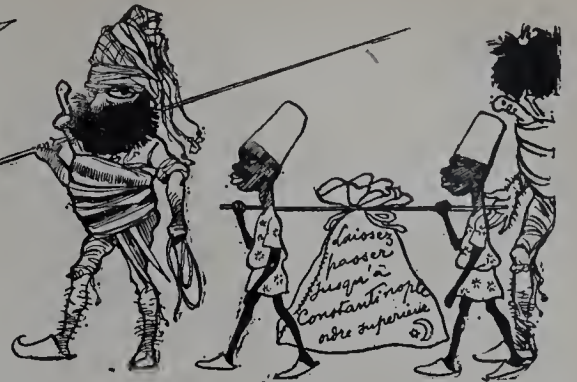 Laissez
passer
jusqu'à
Constantinople
ordre superieur